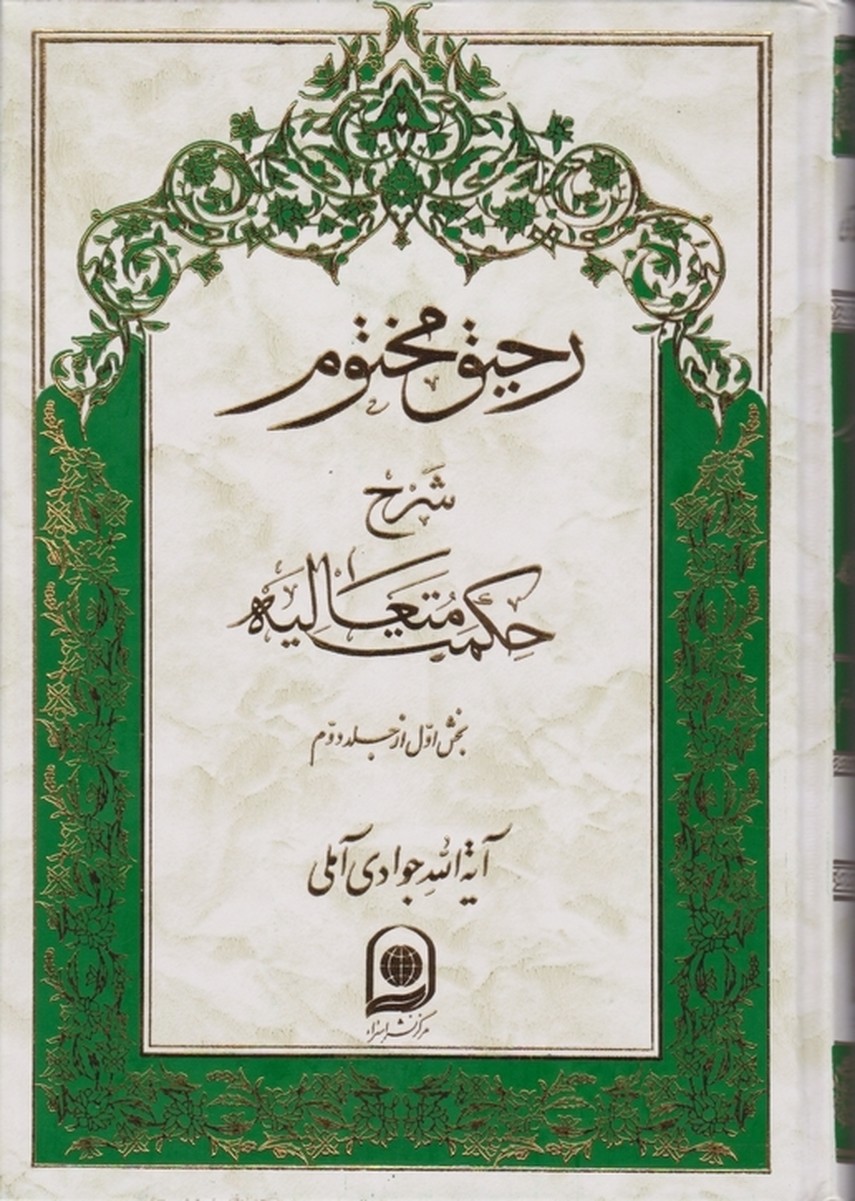 رحیق مختوم
شَرح
حِکمت مُتَعَالیَه
بخش اوّل از جلد دوّم
آیة اللّهِ جوادی آملی
مرکز نشر اسراء